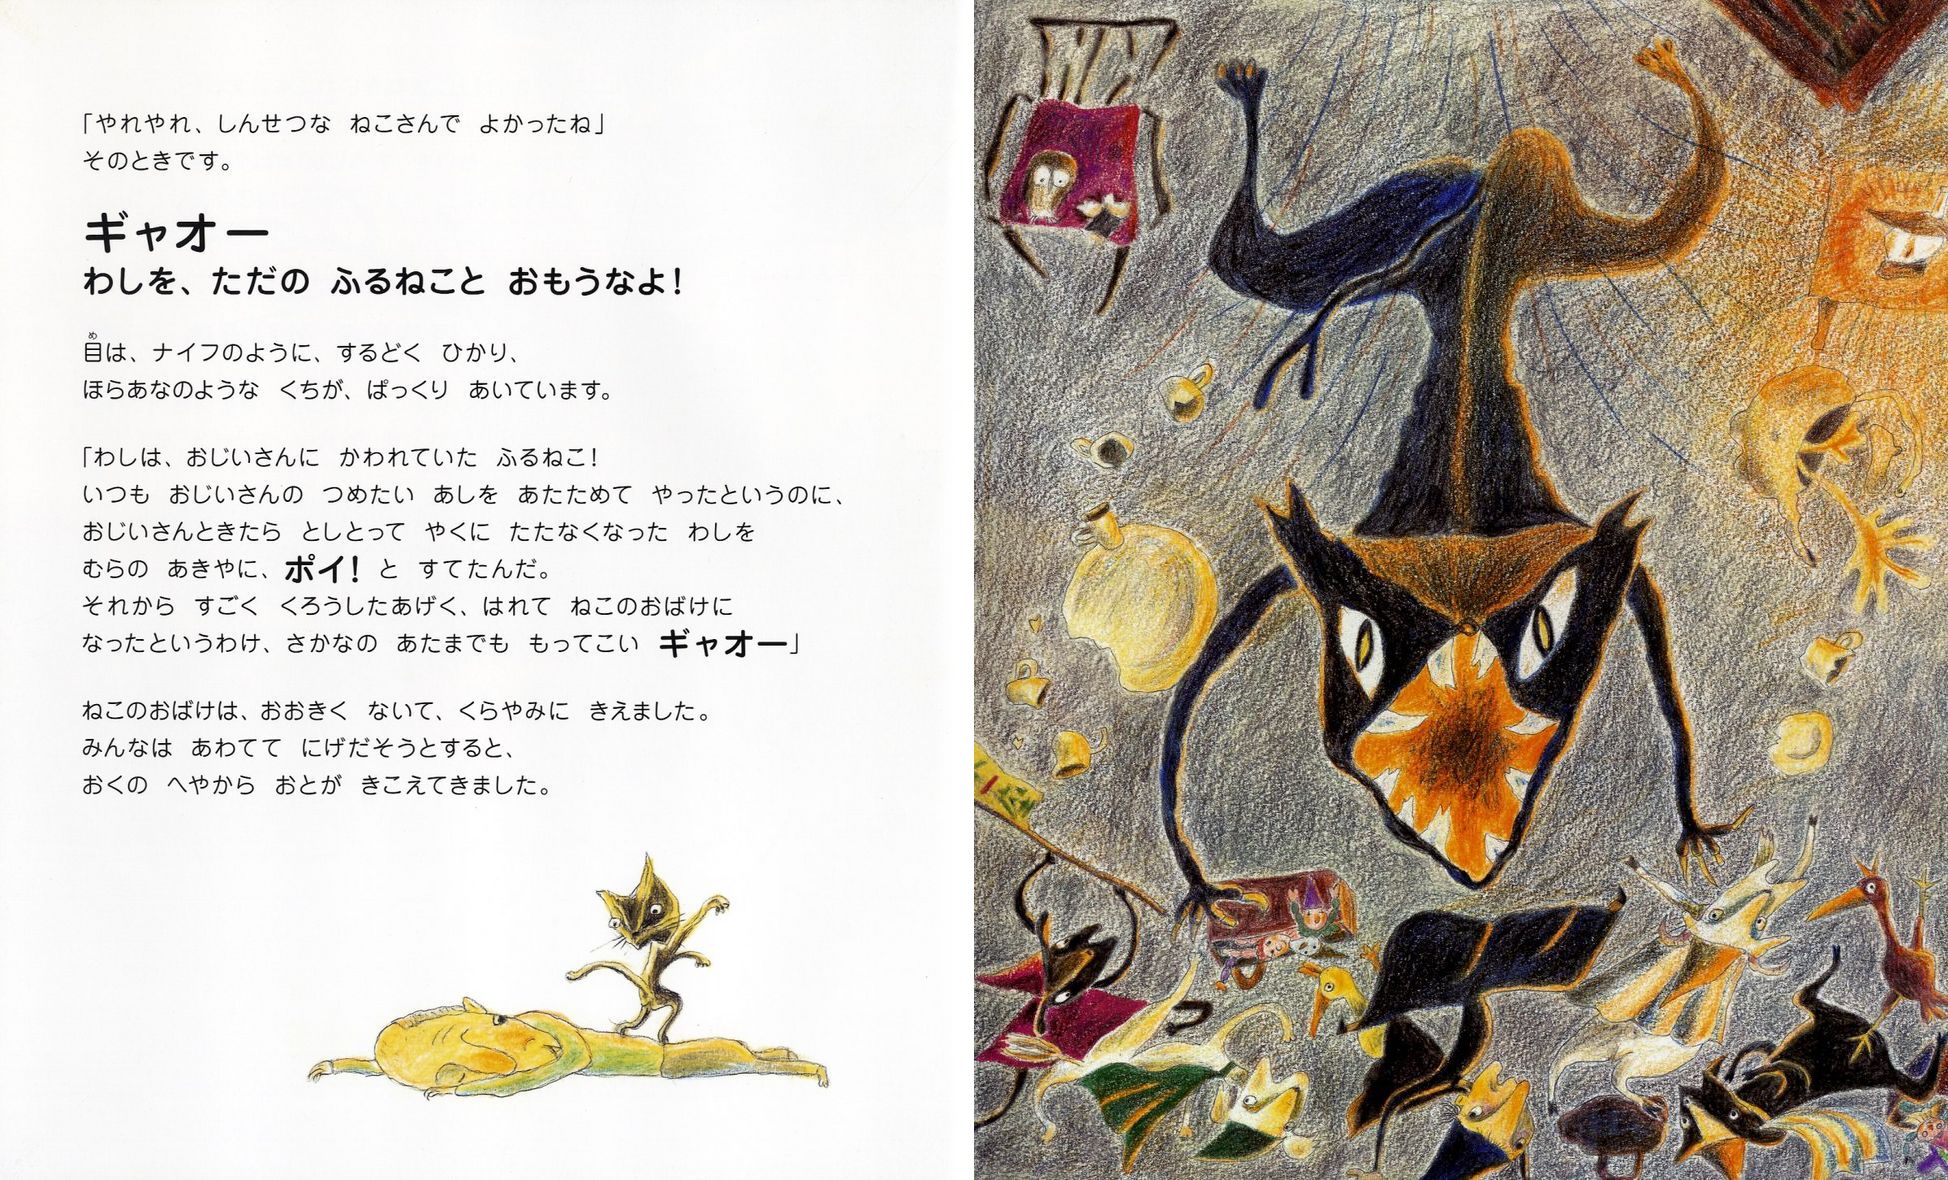 「やれやれ、しんせつな ねこさんで よかったね」
そのときです。
ギャオー
わしを、ただの ふるねこと おもうなよ!
目は、ナイフのように、するどく ひかり、
ほらあなのような くちが、ぱっくり あいています。
「わしは、おじいさんに かわれていた ふるねこ!
いつも おじいさんの つめたい あしを あたためて やったというのに、
おじいさんときたら としとって やくに たたなくなった わしを
むらの あきやに、ポイ! と すてたんだ。
それから すごく くろうしたあげく、はれて ねこのおばけに
なったというわけ、さかなの あたまでも もってこい ギャオー」
ねこのおばけは、おおきく ないて、くらやみに きえました。
みんなは あわてて にげだそうとすると、
おくの へやから おとが きこえてきました。